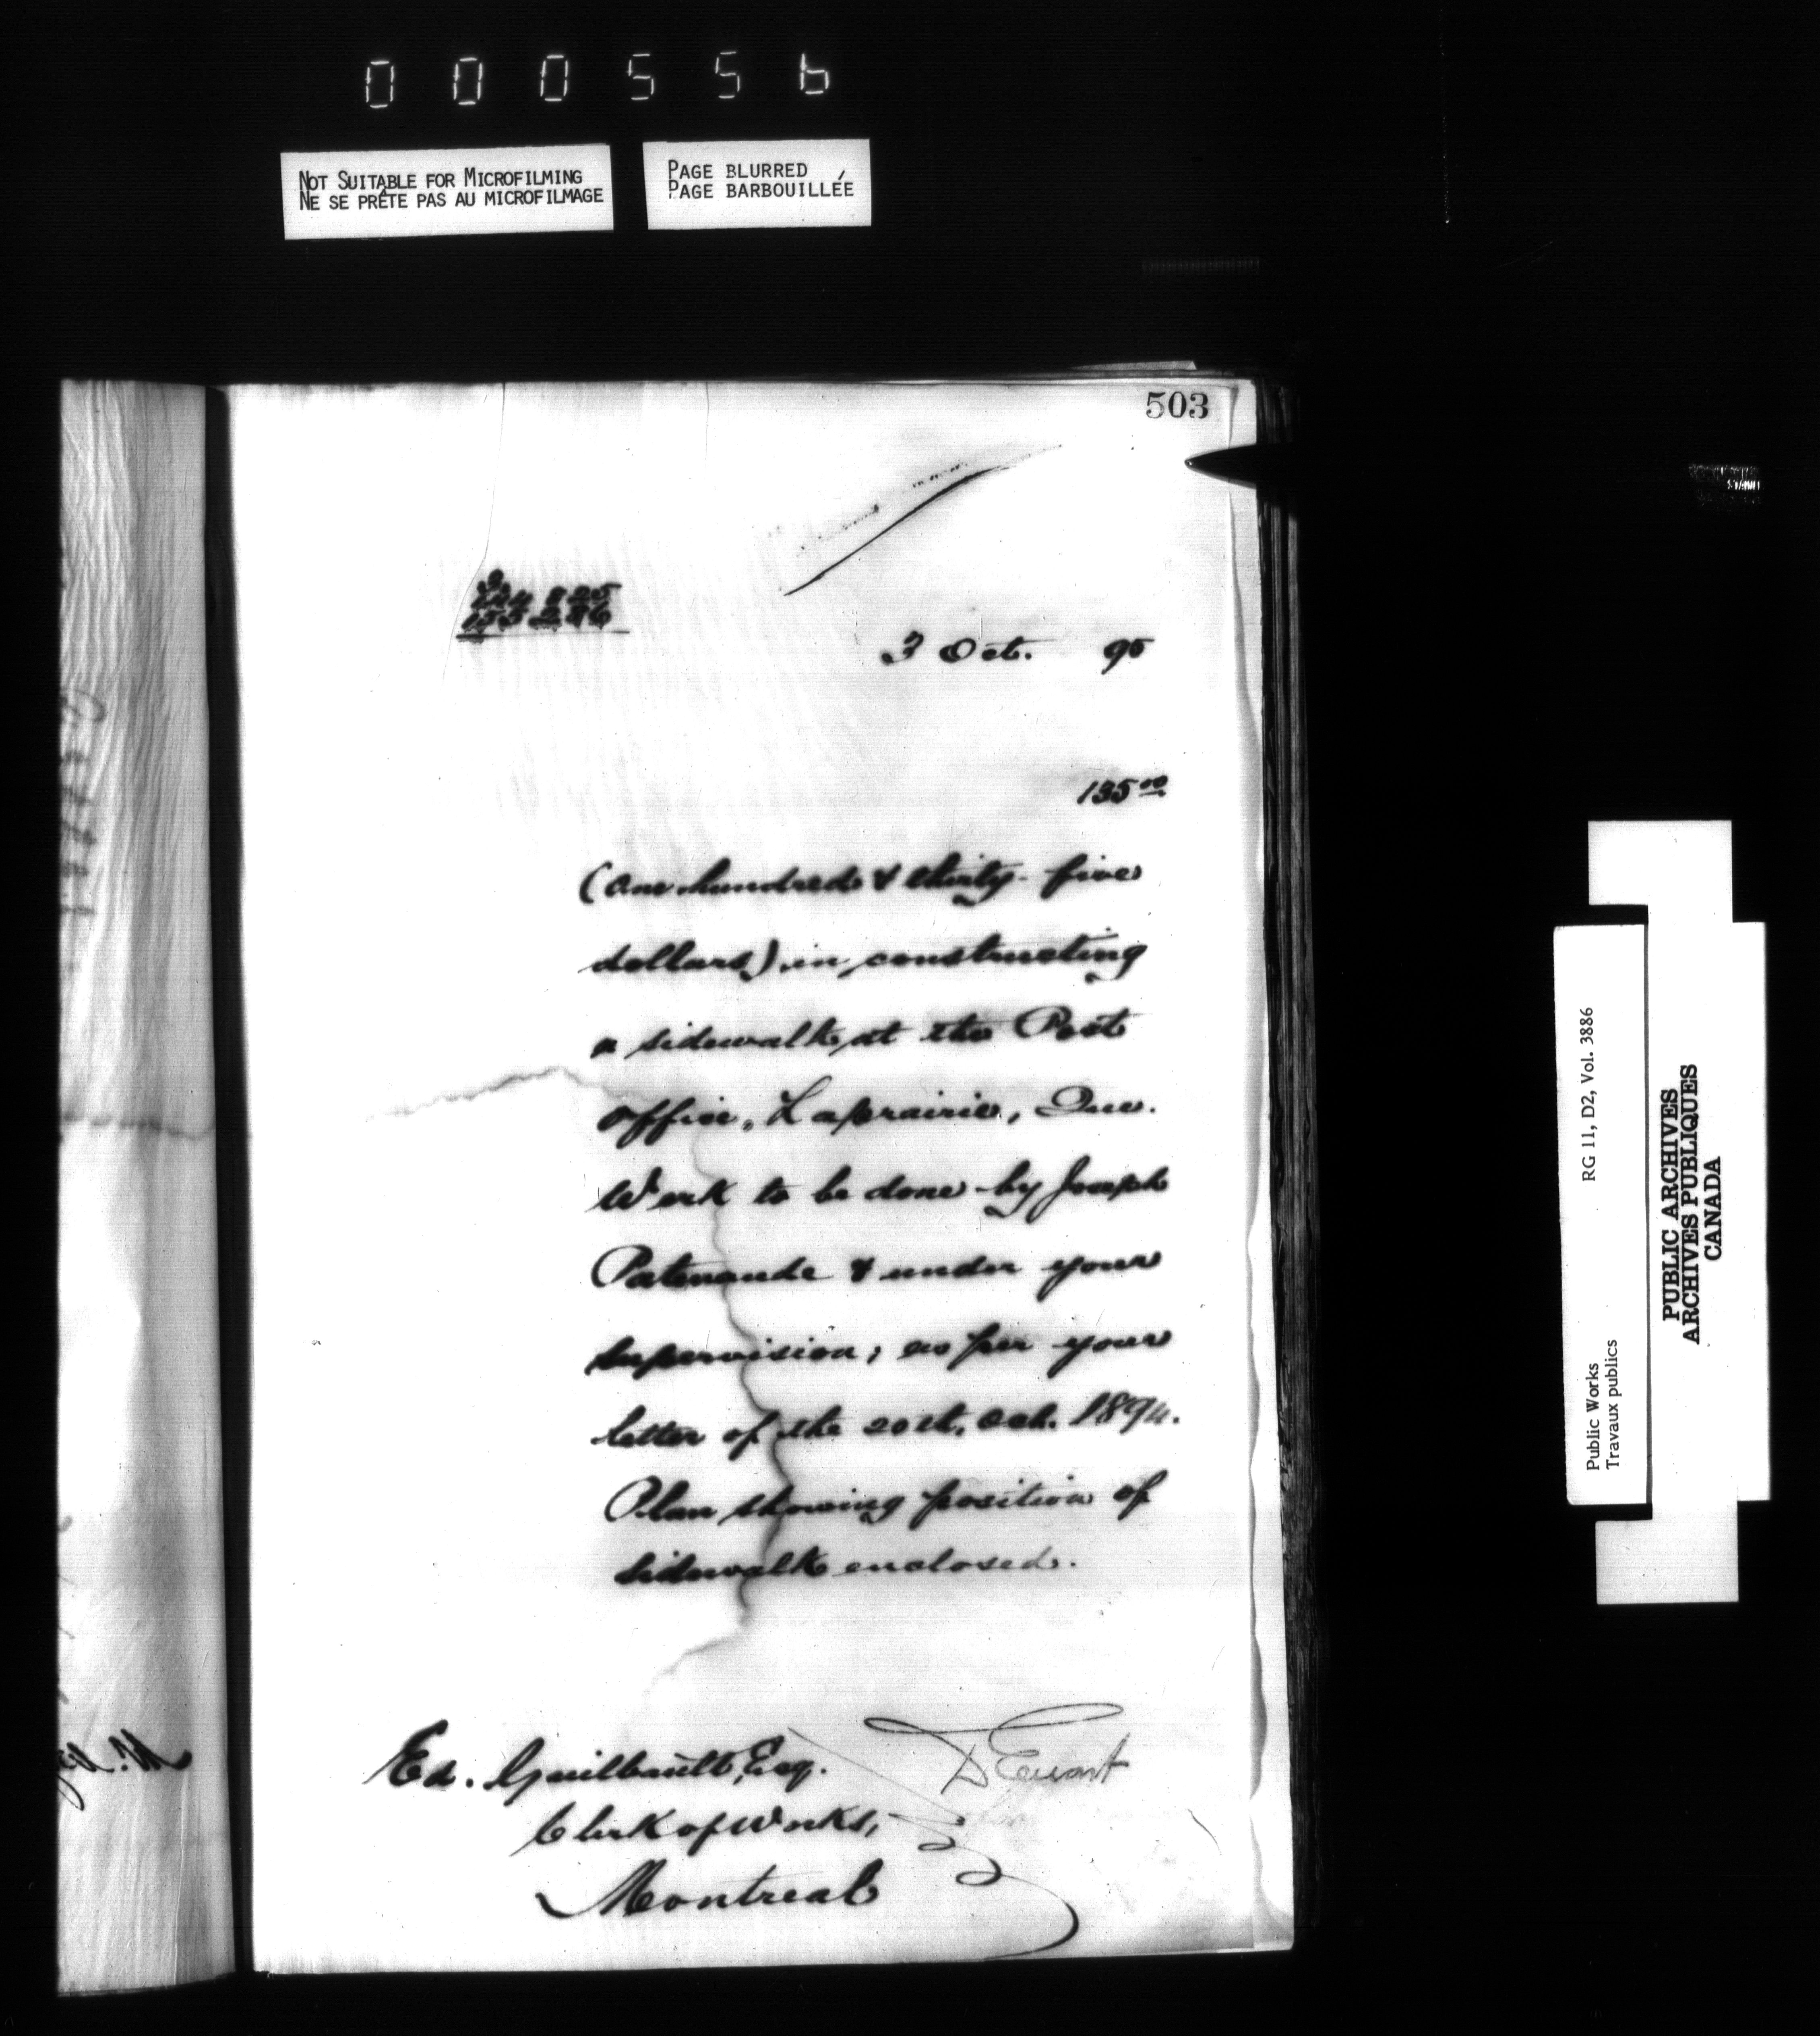 000556
NOT SUITABLE FOR MICROFILMING
NE SE PRÊTE PAS AU MICROFILMAGE
PAGE BLURRED
PAGE BARBOUILLÉE
503
3 Oct. 95
135 00
(One hundred & thirty-five
dollars) in constructing
a sidewalk at the Post
office, Laprairie, Que.
Work to be done by Joseph
Patenaude & under your
supervision, as per your
letter of the 20th, Oct. 1894.
Plan showing position of
sidewalk enclosed.
Ed. Guilbault, Esq.
Clerk of Works,
Montreal
D Ewart
RG 11, D2, Vol. 3886
Public Works
Travaux publics
PUBLIC ARCHIVES
ARCHIVES PUBLIQUES
CANADA